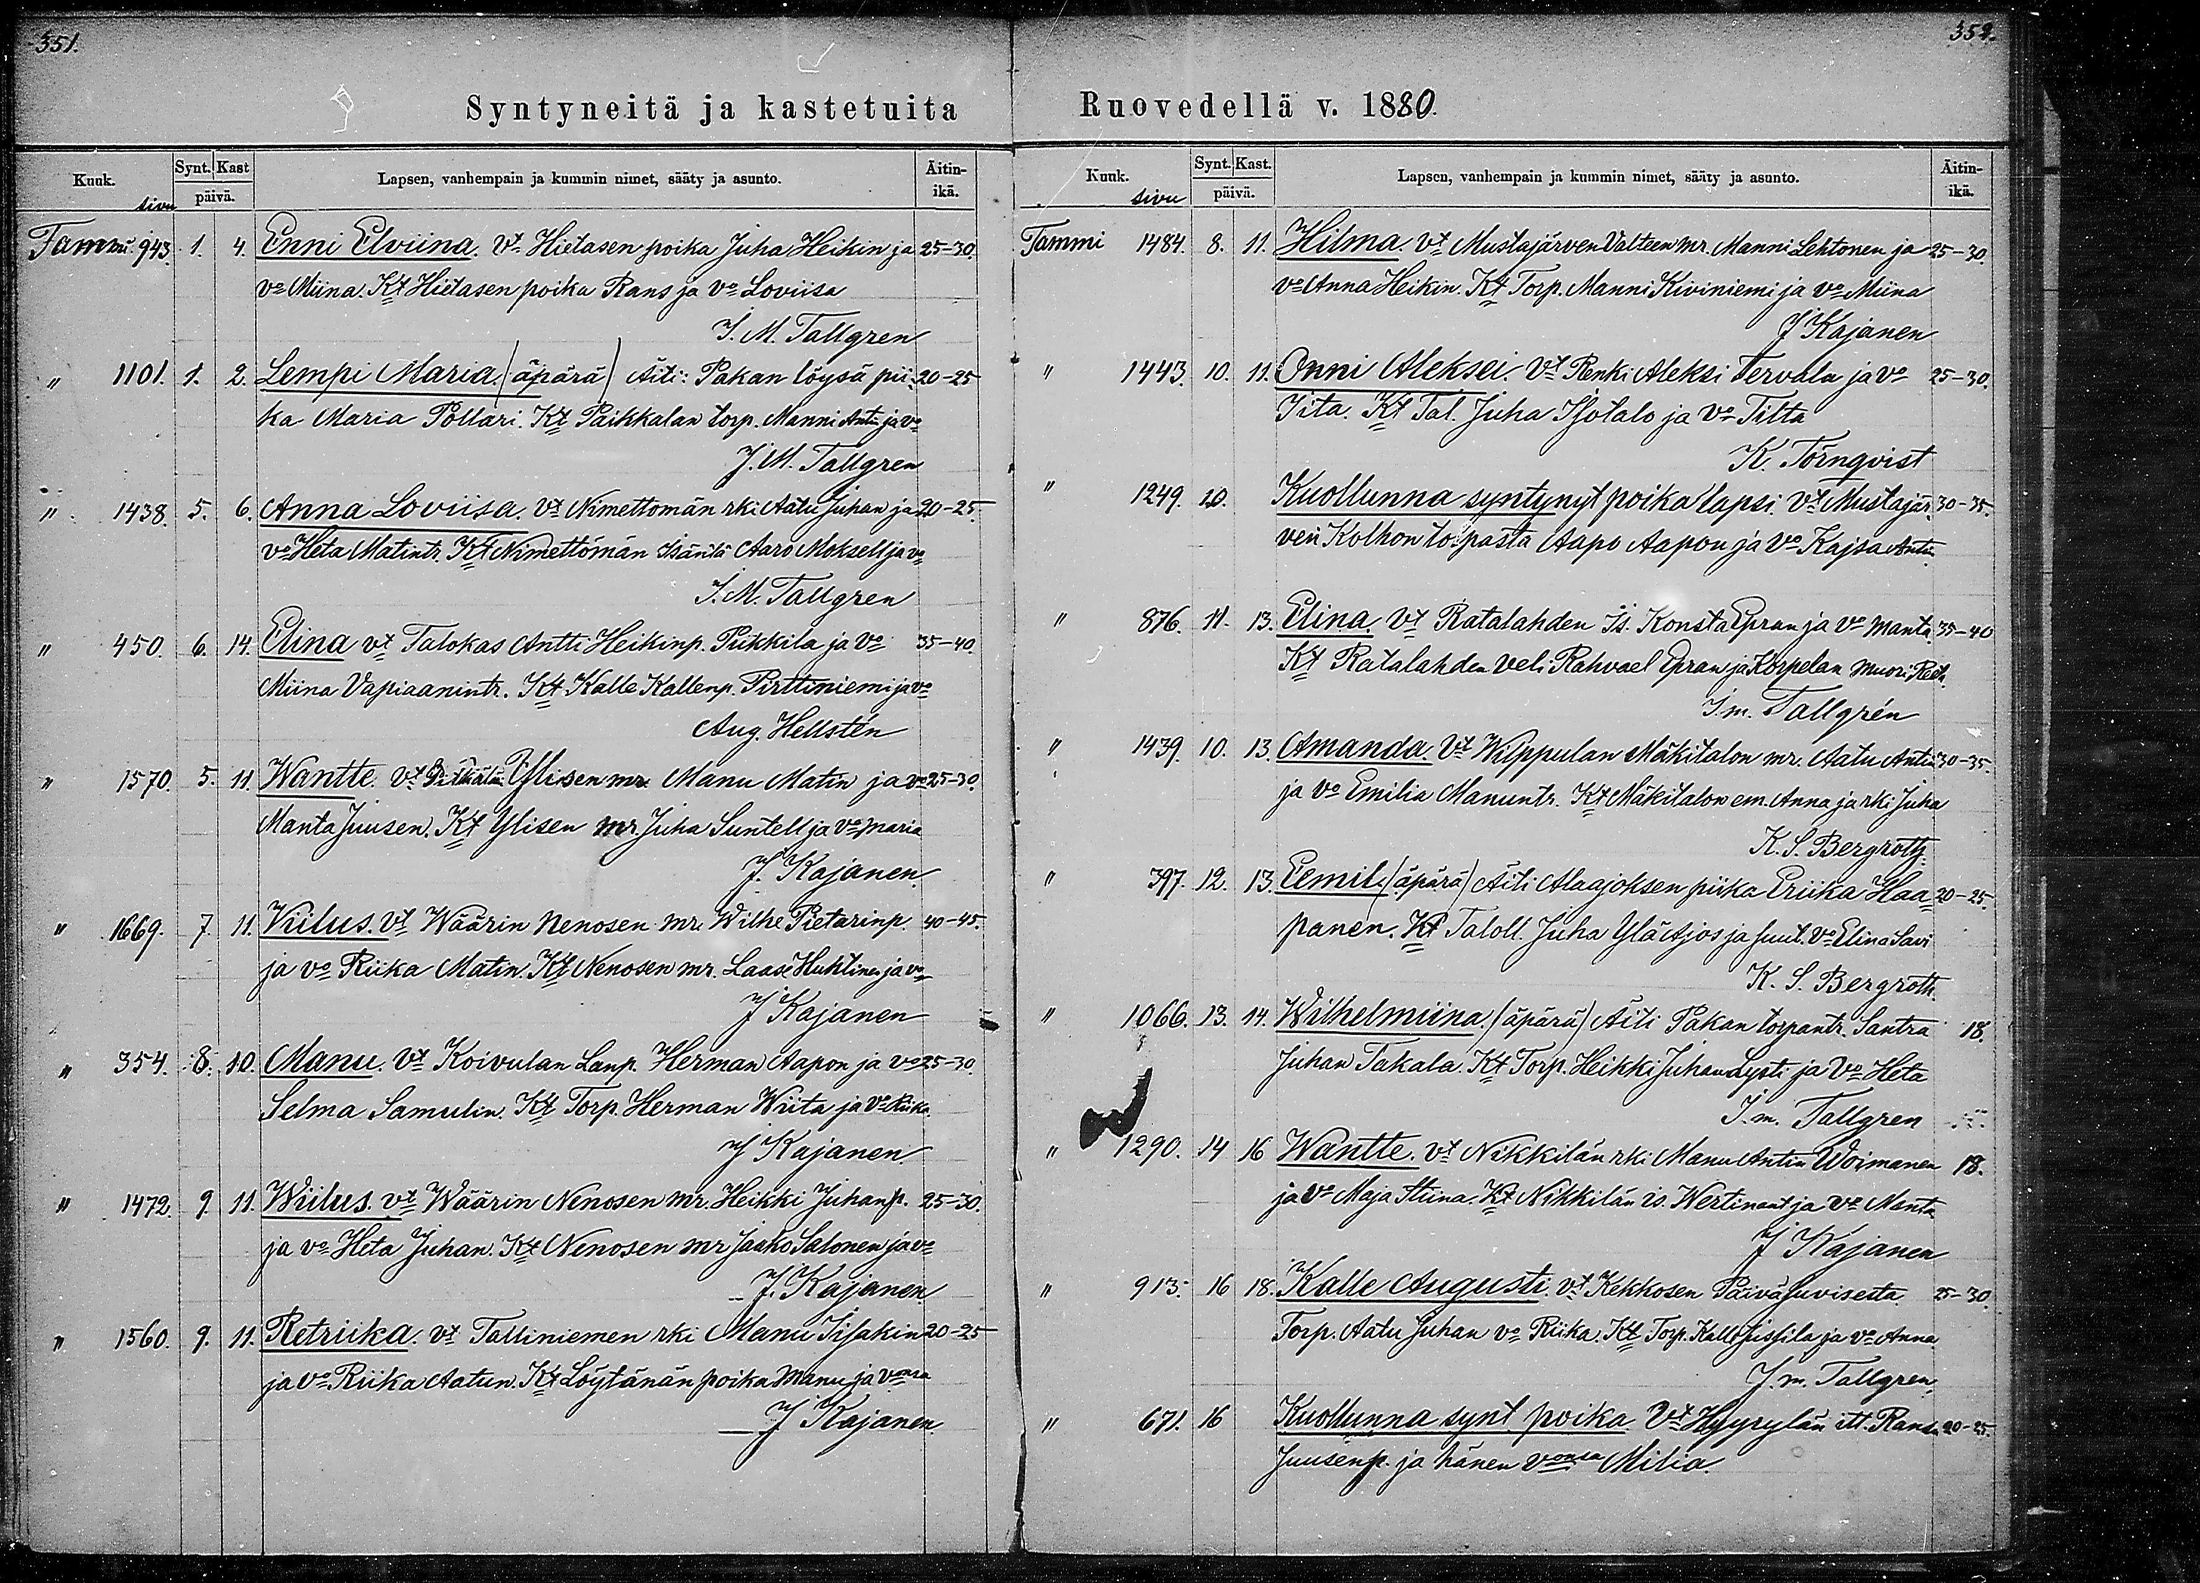 351.
Syntyneitä ja kastetuita
Kuuk. sivu Synt. Kast päivä. Lapsen, vanhempain ja kummin nimet, sääty ja asunto. Äitin-ikä.
Tammi 943. 1. 4. Enni Elviina. Vt. Hietasen poika Juha Heikin ja 25-30.
vo Miina. Kt Hietasen poika Rans ja vo Loviisa
J. M. Tallgren
" 1101. 1. 2. Lempi Maria. (äpärä) Äiti: Pakan löysä pii- 20-25
ka Maria Pollari. Kt Paikkalan torp. Manni Antin ja vo
J. M. Tallgren
" 1438. 5. 6. Anna Loviisa. Vt Nimettomän rki Aatu Juhan ja 20-25.
vo Heta Matintr. Kt Nimettömän Isäntä Aaro Moksell ja vo
J. M. Tallgren
" 450. 6. 14. Elina vt Talokas Antti Heikinp. Pukkila ja Vo 35-40.
Miina Vapiaanintr. Kt Kalle Kallenp. Pirttiniemi ja vo
Aug. Hellstén
" 1570. 5. 11. Wantte. vt Ylisen mr. Manu Matin ja vo 25-30.
Manta Juusen. Kt Ylisen mr. Juha Suntell ja vo Maria
J. Kajanen.
" 1669. 7 11. Viilus. Vt Wäärin Nenosen mr. Wilhe Pietarinp. 40-45.
ja vo Riika Matin. Kt Nenosen mr. Laase Huhtinen ja vo
J Kajanen
" 354. 8. 10. Manu. Vt Koivulan Lanp. Herman Aapon ja vo 25-30.
Selma Samulin. Kt Torp. Herman Wiita ja Vo Riika
J Kajanen.
" 1472. 9 11. Wiilus. vt Wäärin Nenosen mr. Heikki Juhanp. 25-30.
ja vo Heta Juhan. Kt Nenosen mr Jaako Salonen ja vo
J. Kajanen.
" 1560. 9. 11. Retriika. vt Talliniemen rki Manu Iisakin 20-25
ja vo Riika Aatun. Kt Löytänän poika Manu ja vonsa
J Kajanen
352.
Ruovedellä v. 1880.
Kuuk. sivu Synt. Kast. päivä. Lapsen, vanhempain ja kummin nimet, sääty ja asunto. Äitin-ikä.
Tammi 1484. 8. 11. Hilma. Vt Mustajärven Valteen mr. Manni Lehtonen ja 25-30.
vo Anna Heikin. Kt Torp. Manni Kiviniemi ja vo Miina
J Kajanen
" 1443. 10. 11. Onni Aleksei. Vt Renki Aleksi Tervala ja vo 25-30.
Iita. Kt Tal. Juha Isotalo ja vo Titta
K. Törnqvist
" 1249. 10. Kuollunna syntynyt poika lapsi. Vt Mustajär- 30-35.
ven Kolhon torpasta Aapo Aapon ja Vo Kajsa Antin
" 876. 11. 13. Elina. Vt Ratalahden Is. Konsta Epran ja vo Manta 35-40
Kt Ratalahden veli Rahvael Epran ja Korpelan muori Reeta.
J. m. Tallgrén
" 1439. 10. 13. Amanda. Vt Wilppulan Mäkitalon mr. Aatu Antin 30-35.
ja Vo Emilia Manuntr. Kt Mäkitalon em. Anna ja rki Juha
K. S. Bergroth.
" 397. 12. 13. Eemil. (äpärä) Äiti Alaajoksen piika Eriika Haa- 20-25.
panen. Kt Taloll. Juha Yläajos ja suut. Vo Elina Savi
K. S. Bergroth.
" 1066. 13. 14. Wilhelmiina. (äpärä) Äiti Pakan torpantr. Santra 18.
Juhan Takala. Kt Torp. Heikki Juhan Lysti ja Vo Heta
J. m. Tallgren
" 1290. 14 16 Wantte. vt Nikkilän rki Manu Antin Woimanen 18.
ja Vo Maja Stiina. Kt Nikkilän is. Wertinant ja vo Manta
J Kajanen
" 913. 16 18. Kalle Augusti. vt Kekkosen Päiväsuvisesta. 25-30.
Torp. Aatu Juhan vo Riika. Kt Torp. Kalle Jussila ja vo Anna.
J. m. Tallgren,
" 671. 16 Kuollunna synt. poika. Vt Hyyrylän itt. Ransu 20-25.
Juusenp. ja hänen vonsa Milia.